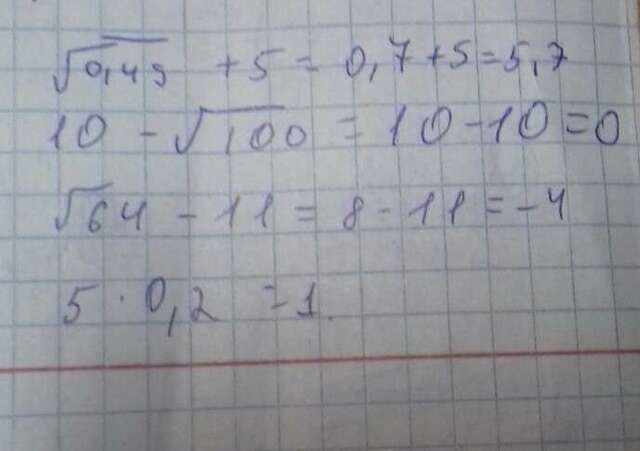 √0,49 + 5 = 0,7+5=5,7
10 - √100 = 10-10=0
√64 - 11 = 8-11=-4
5 · 0,2 = 1.